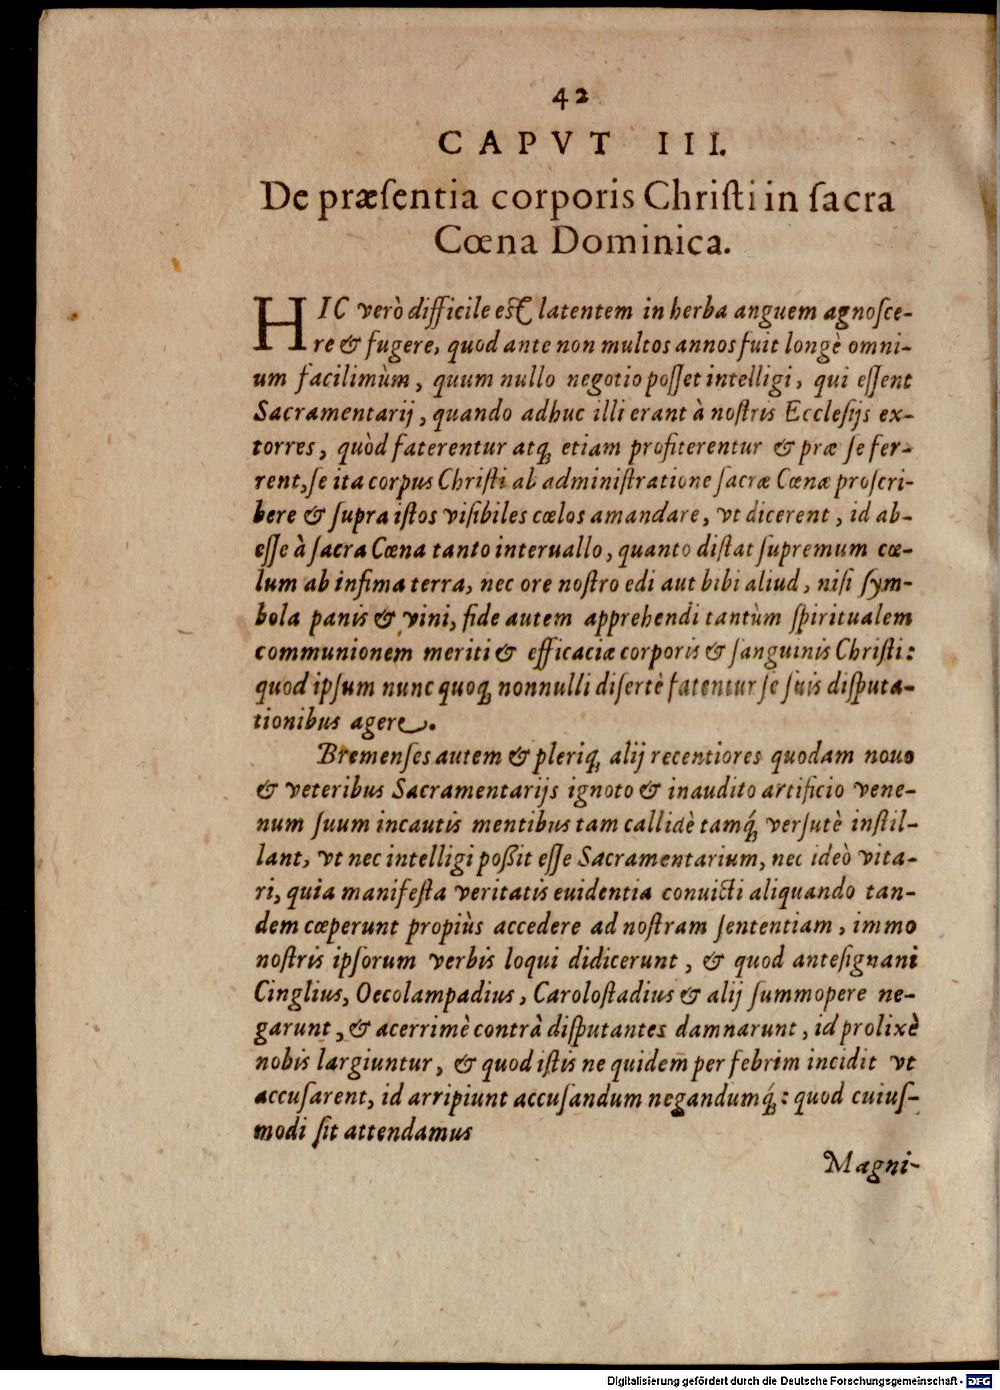 42
CAPVT III.
De præſentia corporis Chriſti in ſacra
Cœna Dominica.
HIC verò difficile eſt latentem in herba anguem agnoſce-
re & fugere, quod ante non multos annos fuit longè omni-
um facilimùm, quum nullo negotio poſſet intelligi, qui eſſent
Sacramentarij, quando adhuc illi erant à noſtris Eccleſijs ex-
torres, quòd faterentur atq́; etiam profiterentur & præ ſe fer-
rent, ſe ita corpus Chriſti ab adminiſtratione ſacræ Cœnæ proſcri-
bere & ſupra iſtos viſibiles cœlos amandare, vt dicerent, id ab-
eſſe à ſacra Cœna tanto interuallo, quanto diſtat ſupremum cœ-
lum ab infima terra, nec ore noſtro edi aut bibi aliud, niſi ſym-
bola panis & vini, fide autem apprehendi tantùm ſpiritualem
communionem meriti & efficaciæ corporis & ſanguinis Chriſti:
quod ipſum nunc quoq; nonnulli diſertè fatentur ſe ſuis diſputa-
tionibus agere.
Bremenſes autem & pleriq; alij recentiores quodam nouo
& veteribus Sacramentarijs ignoto & inaudito artificio vene-
num ſuum incautis mentibus tam callidè tamq́; verſutè inſtil-
lant, vt nec intelligi poßit eſſe Sacramentarium, nec ideò vita-
ri, quia manifeſta veritatis euidentia conuicti aliquando tan-
dem cœperunt propiùs accedere ad noſtram ſententiam, immo
noſtris ipſorum verbis loqui didicerunt, & quod anteſignani
Cinglius, Oecolampadius, Caroloſtadius & alij ſummopere ne-
garunt, & acerrimè contrà diſputantes damnarunt, id prolixè
nobis largiuntur, & quod iſtis ne quidem per febrim incidit vt
accuſarent, id arripiunt accuſandum negandumq́;: quod cuiuſ-
modi ſit attendamus
Magni-
Digitalisierung gefördert durch die Deutsche Forschungsgemeinschaft - DFG